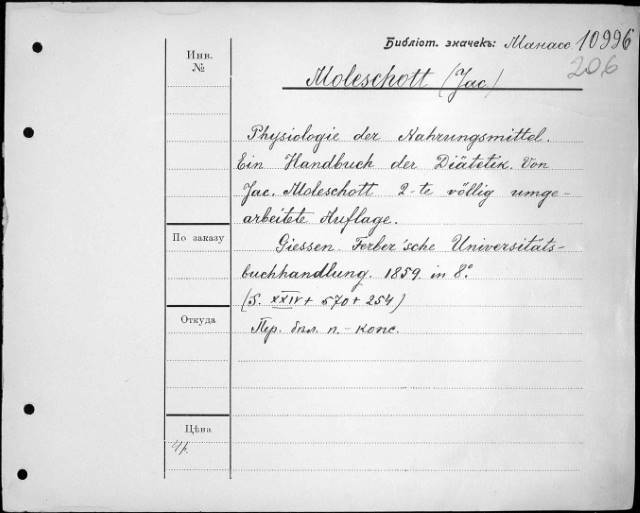 Библіот. значекъ: Манасс 10996
206
Инв.
№
Moleschott (Jac)
Physiologie der Nahrungsmittel.
Ein Handbuch der Diätetik. Von
Jac. Moleschott 2-te völlig umge-
arbeitete Auflage.
По заказу
Giessen. Ferber'sche Universitäts-
buchhandlung. 1859. in 8°
(S. XXIV + 570 + 254)
Откуда
Пер. бол. п.-кожс.
Цѣна
4р.